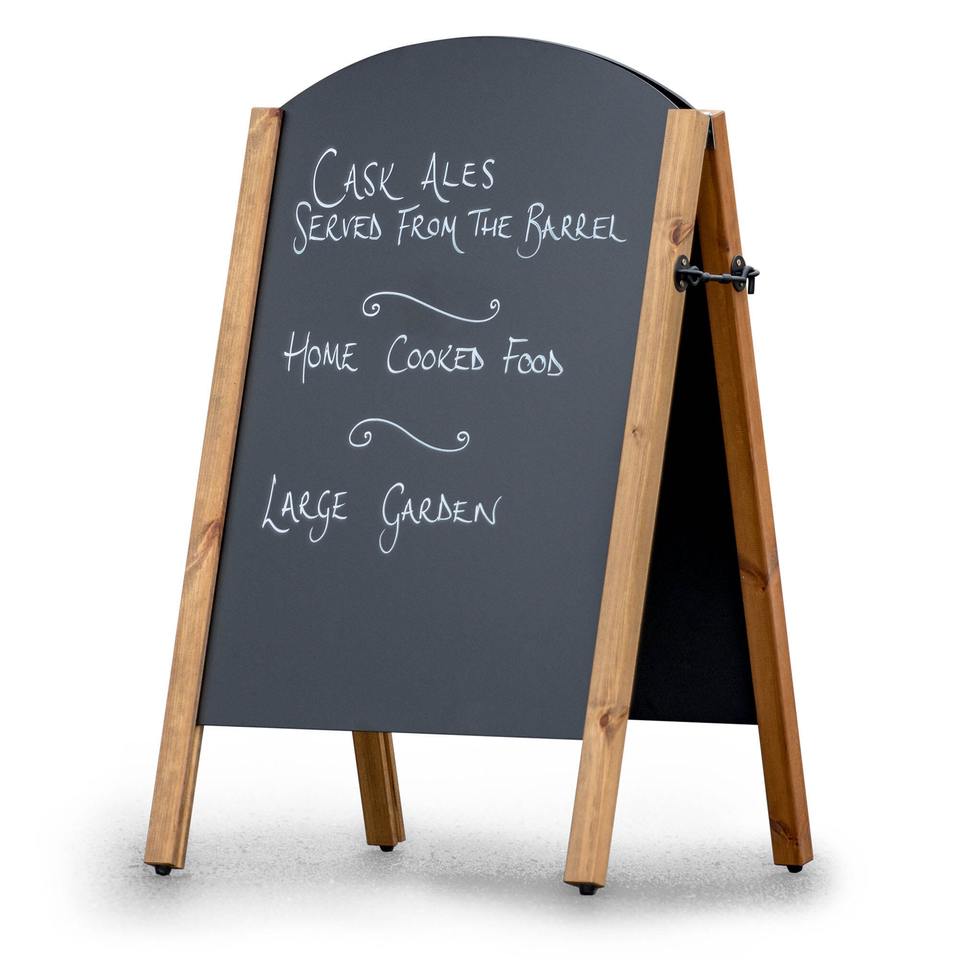 Cask Ales
Served From The Barrel
Home Cooked Food
Large Garden